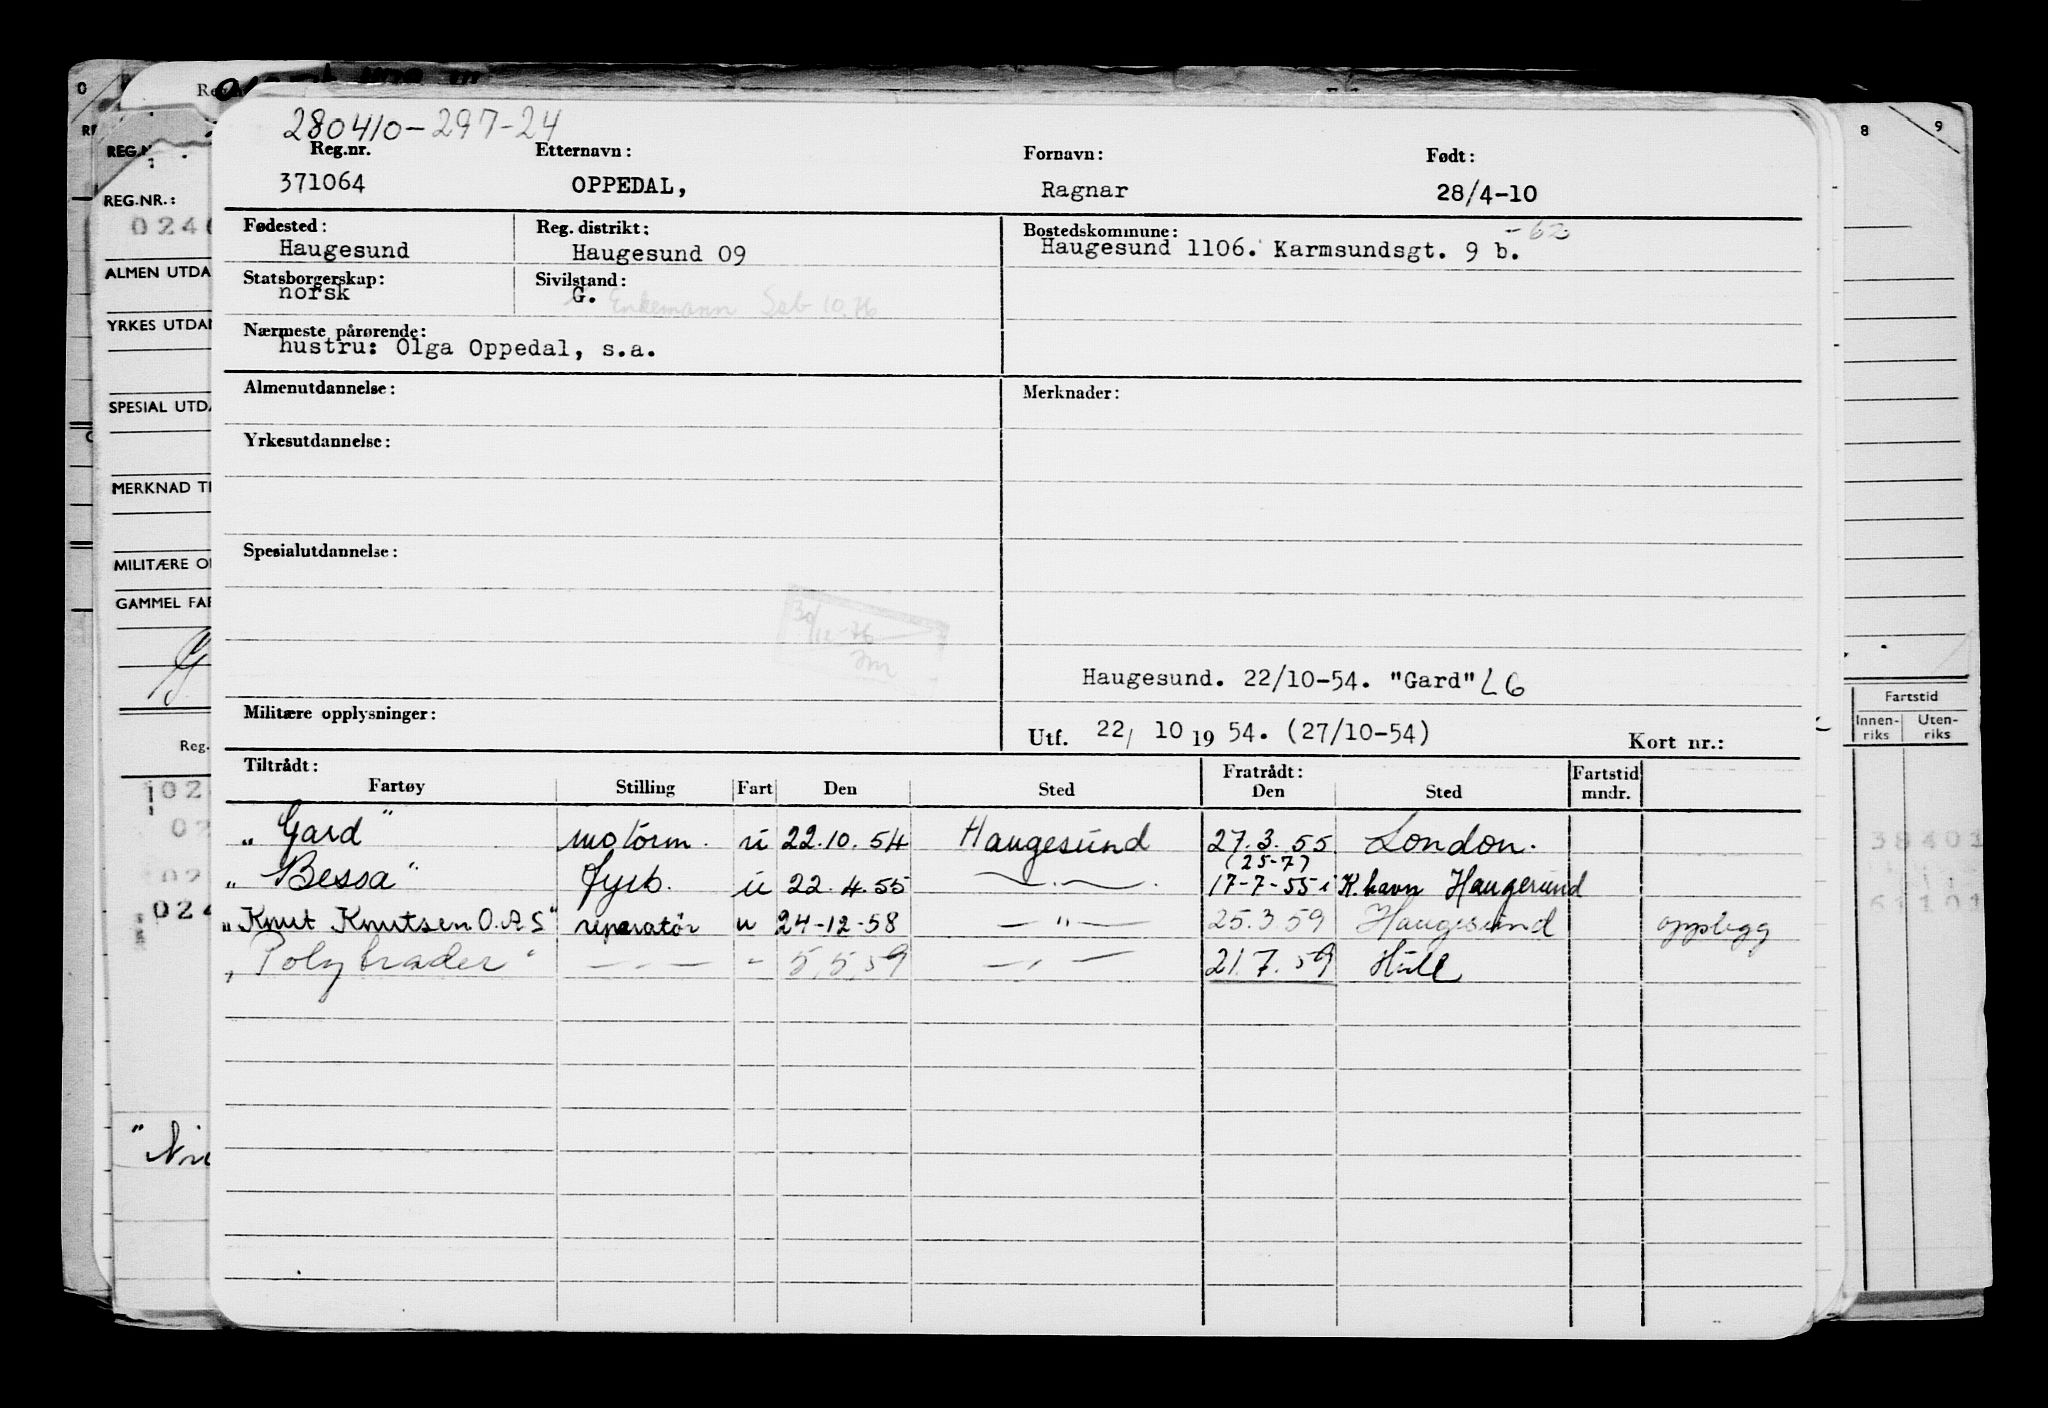 280410-297-24
Reg.nr. Etternavn: Fornavn: Født:
371064 OPPEDAL, Ragnar 28/4-10
Fødested: Reg. distrikt: Bostedskommune: -62
Haugesund Haugesund 09 Haugesund 1106. Karmsundsgt. 9 b.
Statsborgerskap: Sivilstand:
norsk G. Enkemann
Nærmeste pårørende:
hustru: Olga Oppedal, s.a.
Almenutdannelse: Merknader:
Yrkesutdannelse:
Spesialutdannelse:
30/12-76
Haugesund. 22/10-54. "Gard" L6
Militære opplysninger:
Utf. 22/ 10 19 54. (27/10-54) Kort nr.:
Tiltrådt: Fratrådt: Fartstid
Fartøy Stilling Fart Den Sted Den Sted mndr.
"Gard" motorm. u 22.10.54 Haugesund 27.3.55 London.
(25-7)
"Bessa" fyrb. u 22.4.55 — " — 17-7-55 i K.havn Haugesund
"Knut Knutsen O.A.S" reparatør u 24-12-58 — " — 25.3.59 Haugesund opplegg
"Polytrader" — " — " 5.5.59 — " — 21.7.59 Hull
REG.NR.:
ALMEN UTDA
YRKES UTDAN
SPESIAL UTDA
MERKNAD TI
MILITÆRE O
GAMMEL FAR
Reg.
024
8 9
Fartstid
Innen-riks Uten-riks
38401
61101